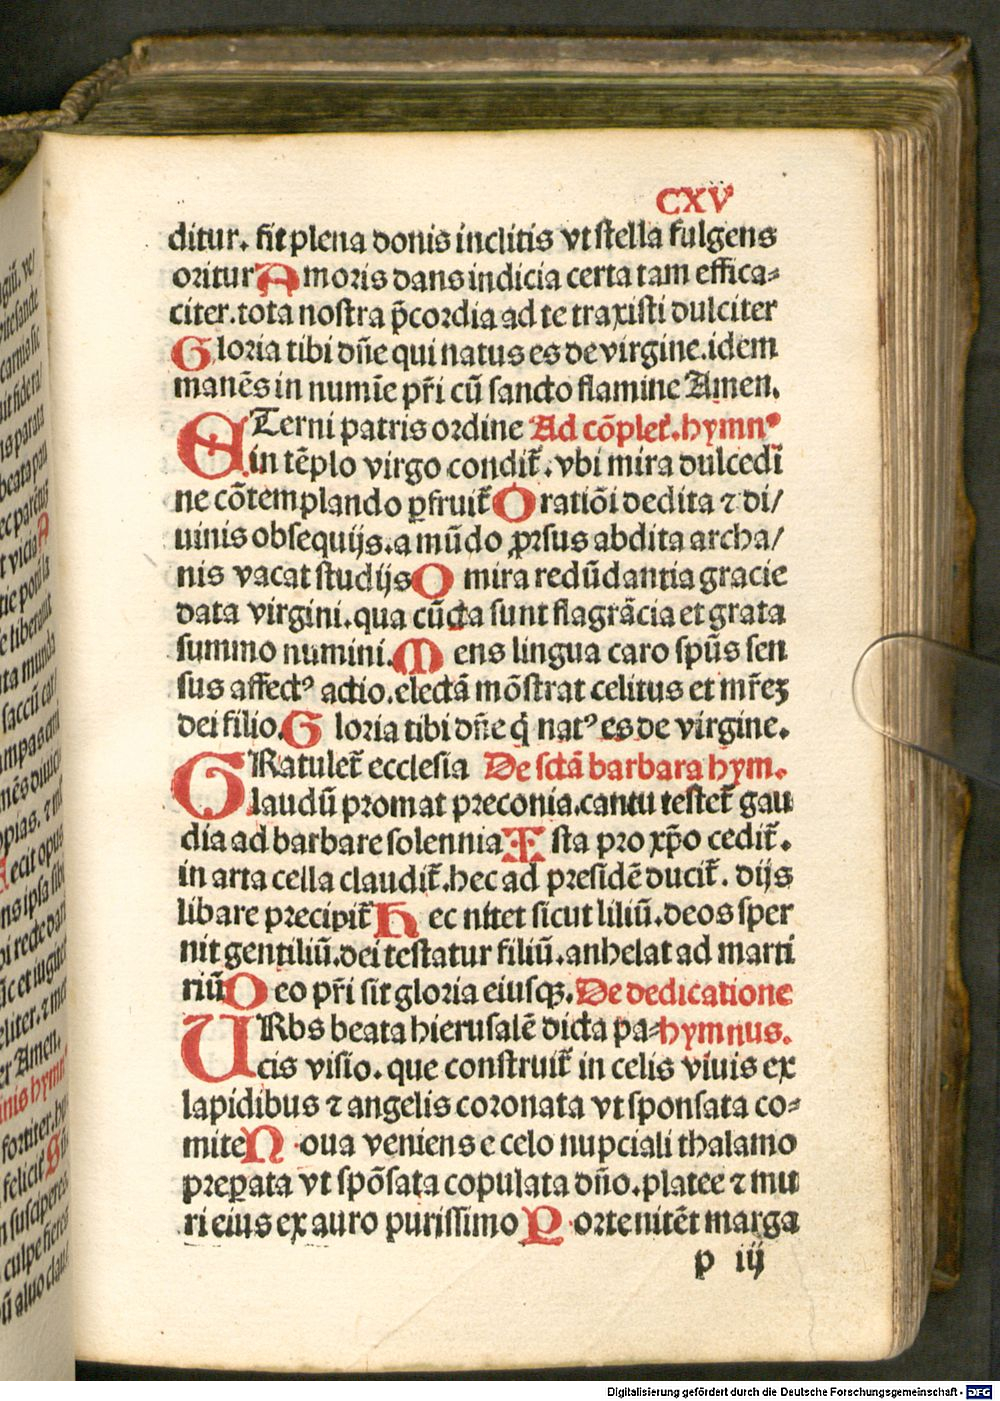 CXV
ditur. fit plena donis inclitis vt stella fulgens
oritur Amoris dans indicia certa tam effica⸗
citer. tota nostra p̄cordia ad te traxisti dulciter
Gloria tibi dn̄e qui natus es de virgine. idem
manēs in numīe pr̄i cū sancto flamine Amen.
ETerni patris ordine Ad cōplet̄. hymnꝰ
in tēplo virgo condit̄. vbi mira dulcedī
ne cōtemplando ꝑfruit̄ Oratiōi dedita ⁊ di/
uinis obsequijs. a mūdo ꝓrsus abdita archa/
nis vacat studijs O mira redūdantia gracie
data virgini. qua cūcta sunt flagrācia et grata
summo numini. Mens lingua caro spūs sen
sus affectꝰ actio. electā mōstrat celitus et mr̄eʒ
dei filio. Gloria tibi dn̄e q̇ natꝰ es de virgine.
GRatulet̄ ecclesia De sctā barbara hym.
laudū promat preconia. cantu testet̄ gau
dia ad barbare solennia Ista pro xp̄o cedit̄.
in arta cella claudit̄. hec ad presidē ducit̄. dijs
libare precipit̄ Hec nitet sicut liliū. deos sper
nit gentiliū. dei testatur filiū. anhelat ad marti
riū Deo pr̄i sit gloria eiusqꝫ. De dedicatione
URbs beata hierusalē dicta pa⸗ hymnus.
cis visio. que construit̄ in celis viuis ex
lapidibus ⁊ angelis coronata vt sponsata co⸗
mite Noua veniens e celo nupciali thalamo
preꝑata vt spōsata copulata dn̄o. platee ⁊ mu
ri eius ex auro purissimo Porte nitēt marga
p iij
Digitalisierung gefördert durch die Deutsche Forschungsgemeinschaft - DFG